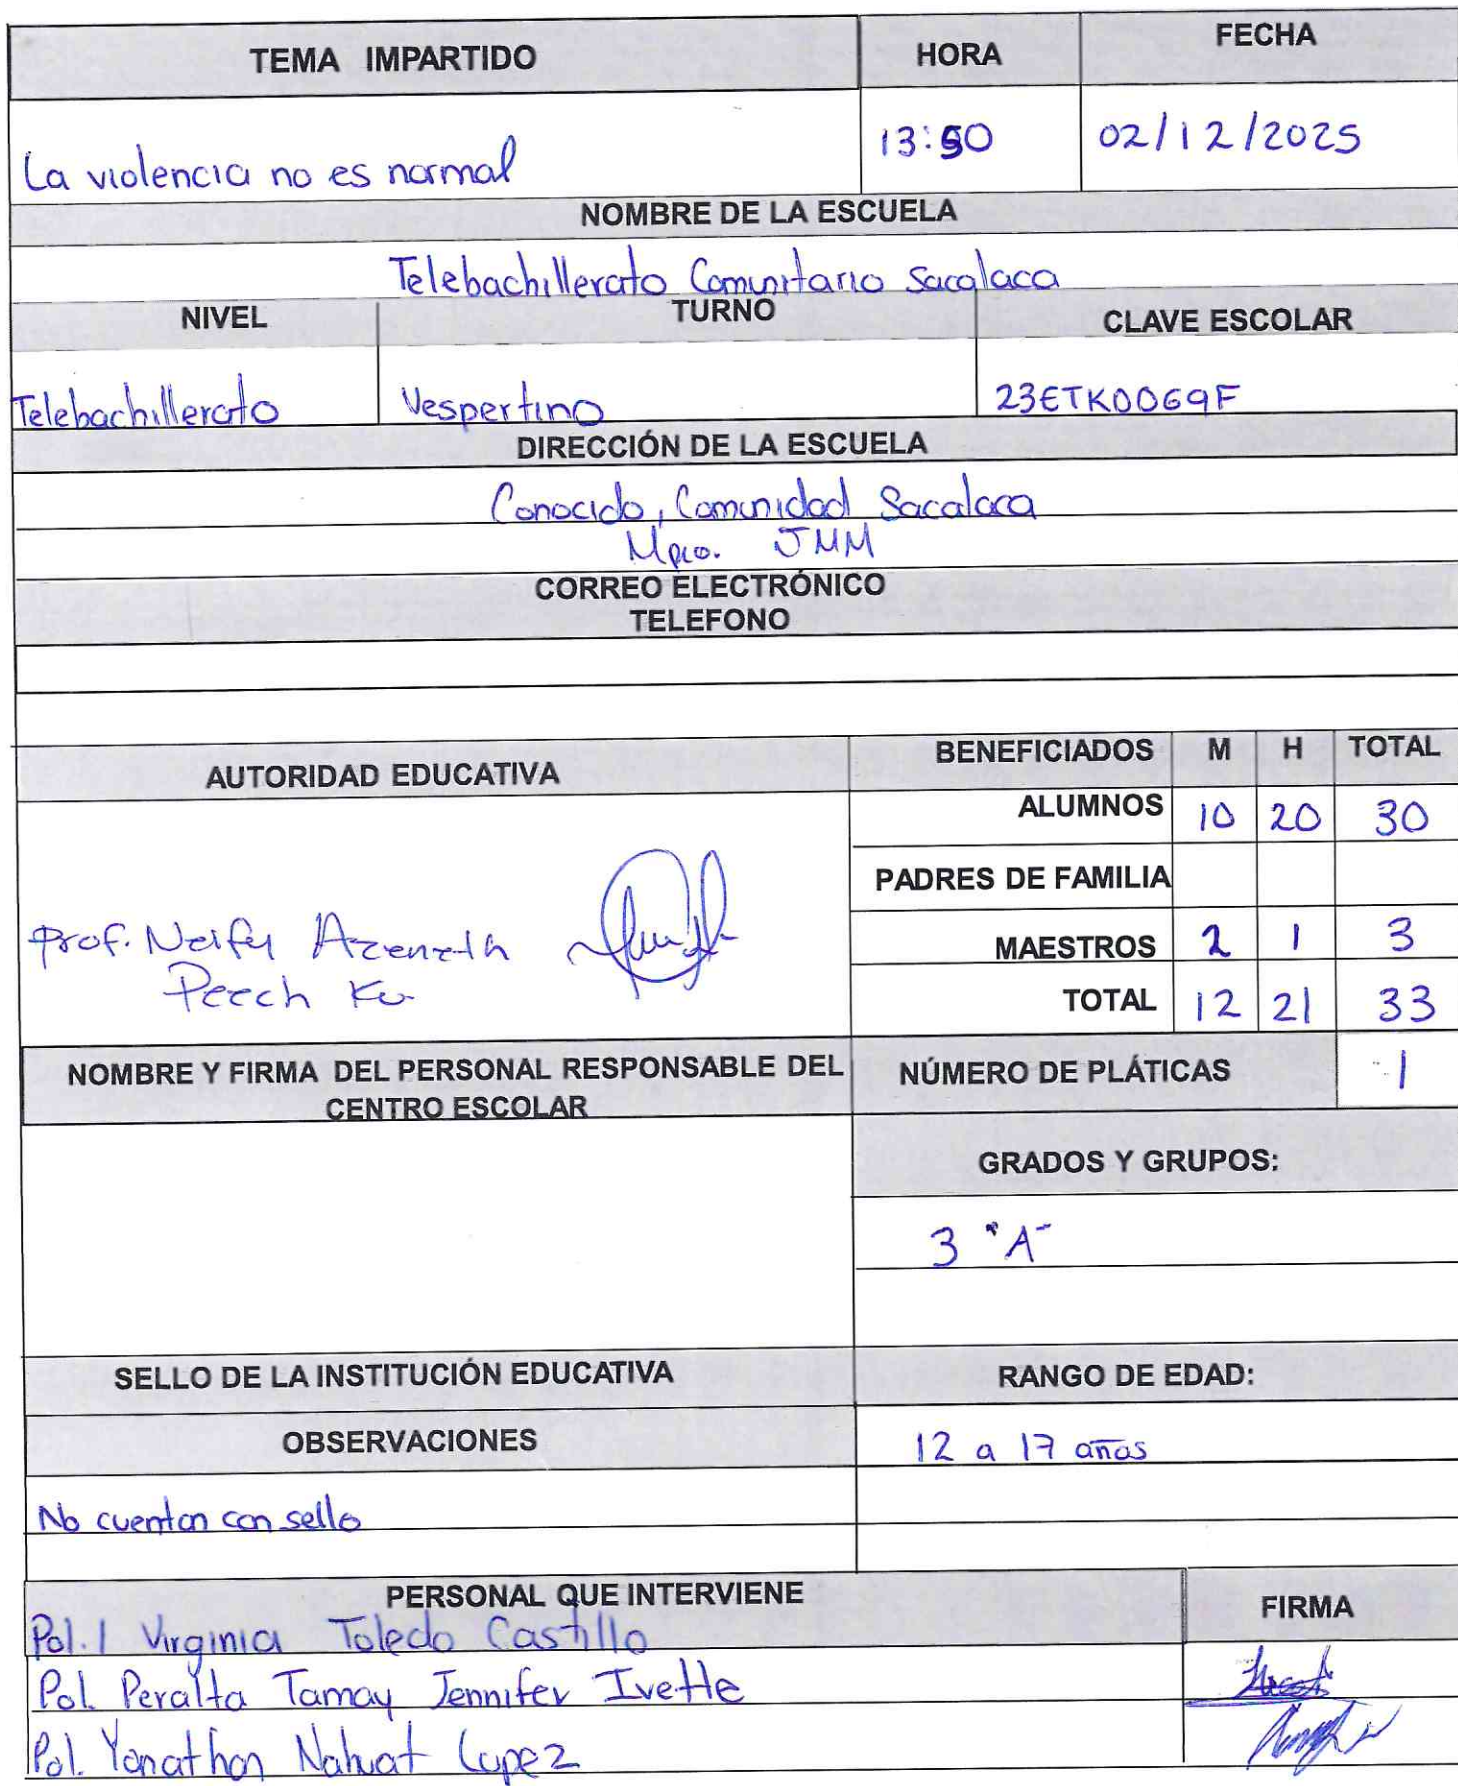 TEMA IMPARTIDO HORA FECHA
La violencia no es normal 13:50 02/12/2025
NOMBRE DE LA ESCUELA
Telebachillerato Comunitario Sacalaca
NIVEL TURNO CLAVE ESCOLAR
Telebachillerato Vespertino 23ETK0069F
DIRECCIÓN DE LA ESCUELA
Conocido, Comunidad Sacalaca
Mpio. JMM
CORREO ELECTRÓNICO
TELEFONO
AUTORIDAD EDUCATIVA BENEFICIADOS M H TOTAL
ALUMNOS 10 20 30
PADRES DE FAMILIA
Prof. Neify Azeneth MAESTROS 2 1 3
Peech Ku TOTAL 12 21 33
NOMBRE Y FIRMA DEL PERSONAL RESPONSABLE DEL NÚMERO DE PLÁTICAS 1
CENTRO ESCOLAR
GRADOS Y GRUPOS:
3 "A"
SELLO DE LA INSTITUCIÓN EDUCATIVA RANGO DE EDAD:
OBSERVACIONES 12 a 17 años
No cuentan con sello
PERSONAL QUE INTERVIENE FIRMA
Pol. 1 Virginia Toledo Castillo
Pol. Peralta Tamay Jennifer Ivette
Pol. Yonathan Nahuat Lopez